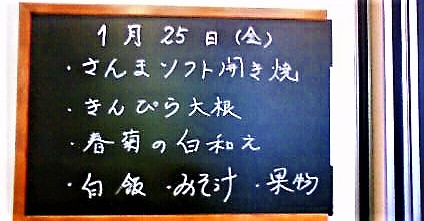 1月25日(金)
・さんまソフト開き焼
・きんぴら大根
・春菊の白和え
・白飯 ・みそ汁 ・果物